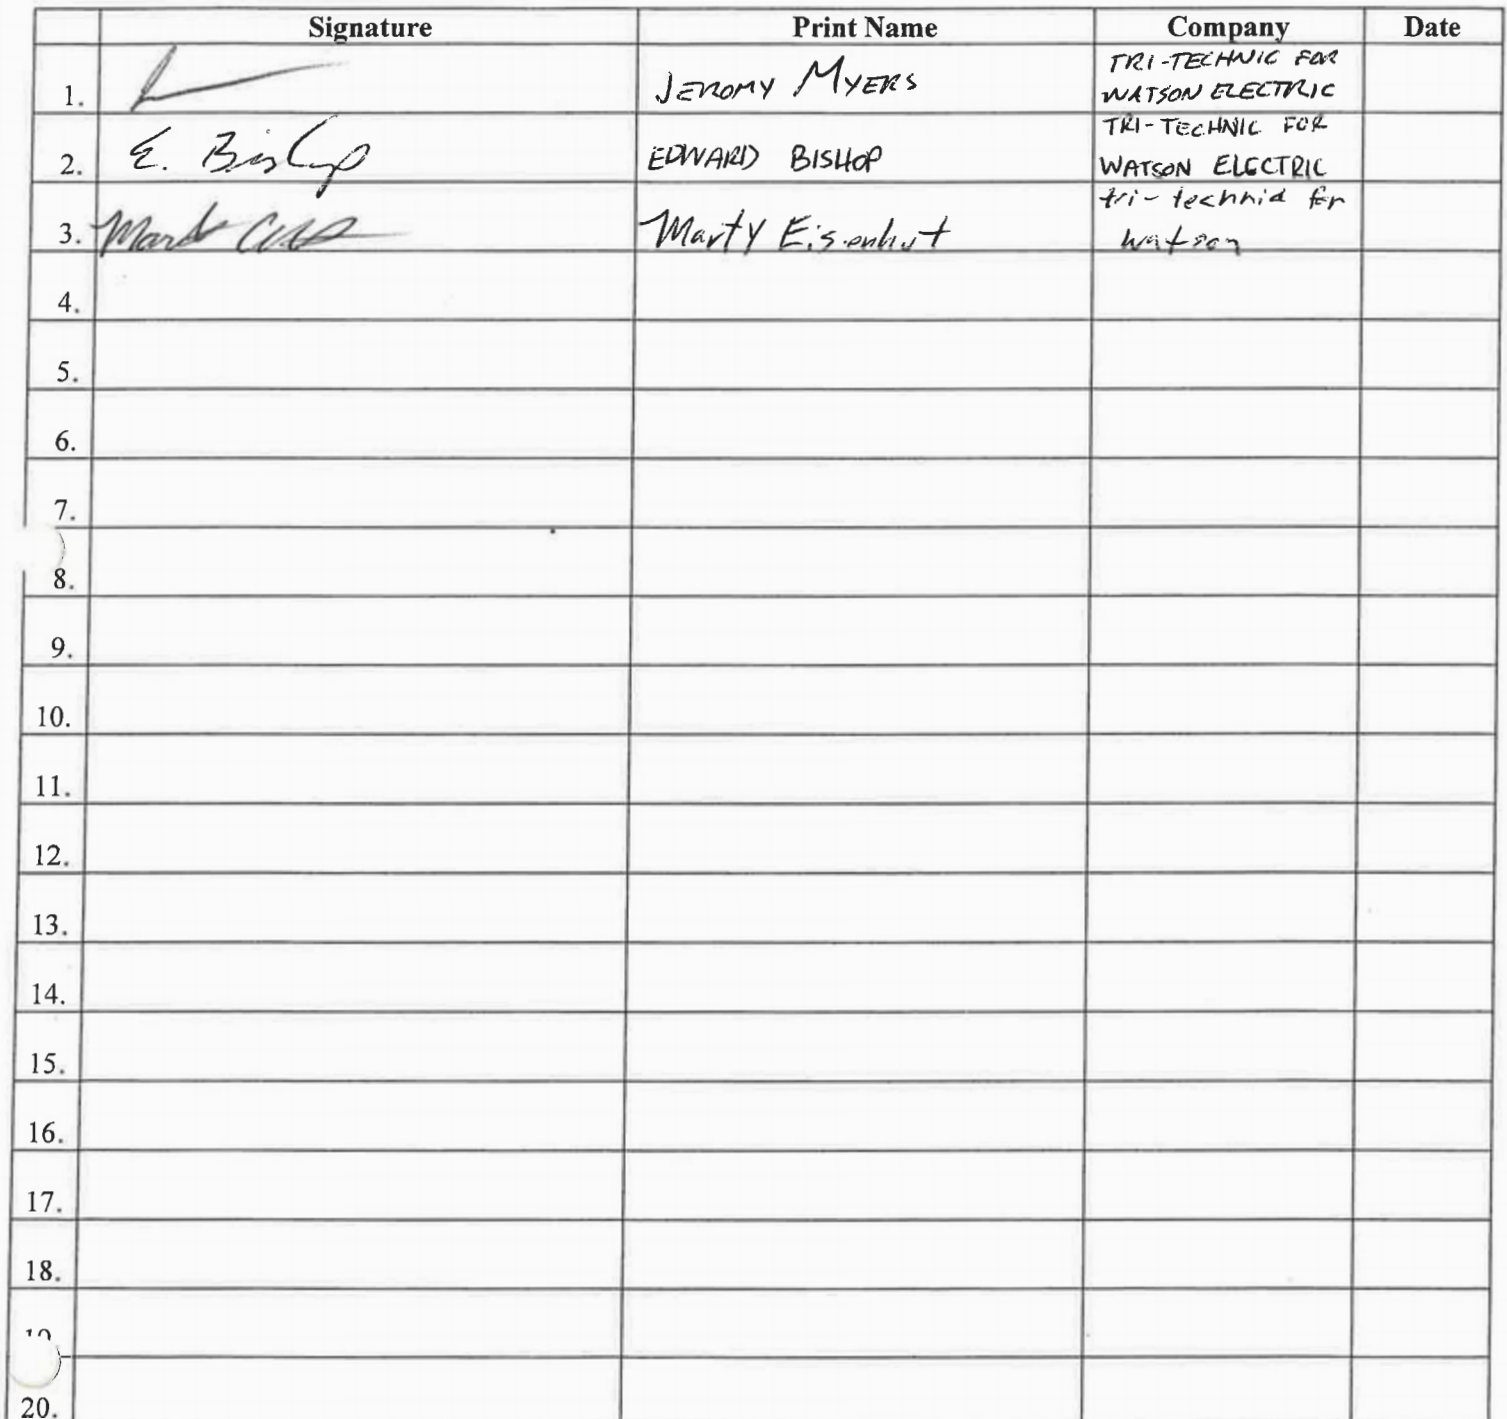 Signature Print Name Company Date
1. JEROMY MYERS TRI-TECHNIC FOR
WATSON ELECTRIC
2. E. Bishop EDWARD BISHOP TRI-TECHNIC FOR
WATSON ELECTRIC
3. Marty Eisenhut tri-technic for
watson
4.
5.
6.
7.
8.
9.
10.
11.
12.
13.
14.
15.
16.
17.
18.
19.
20.